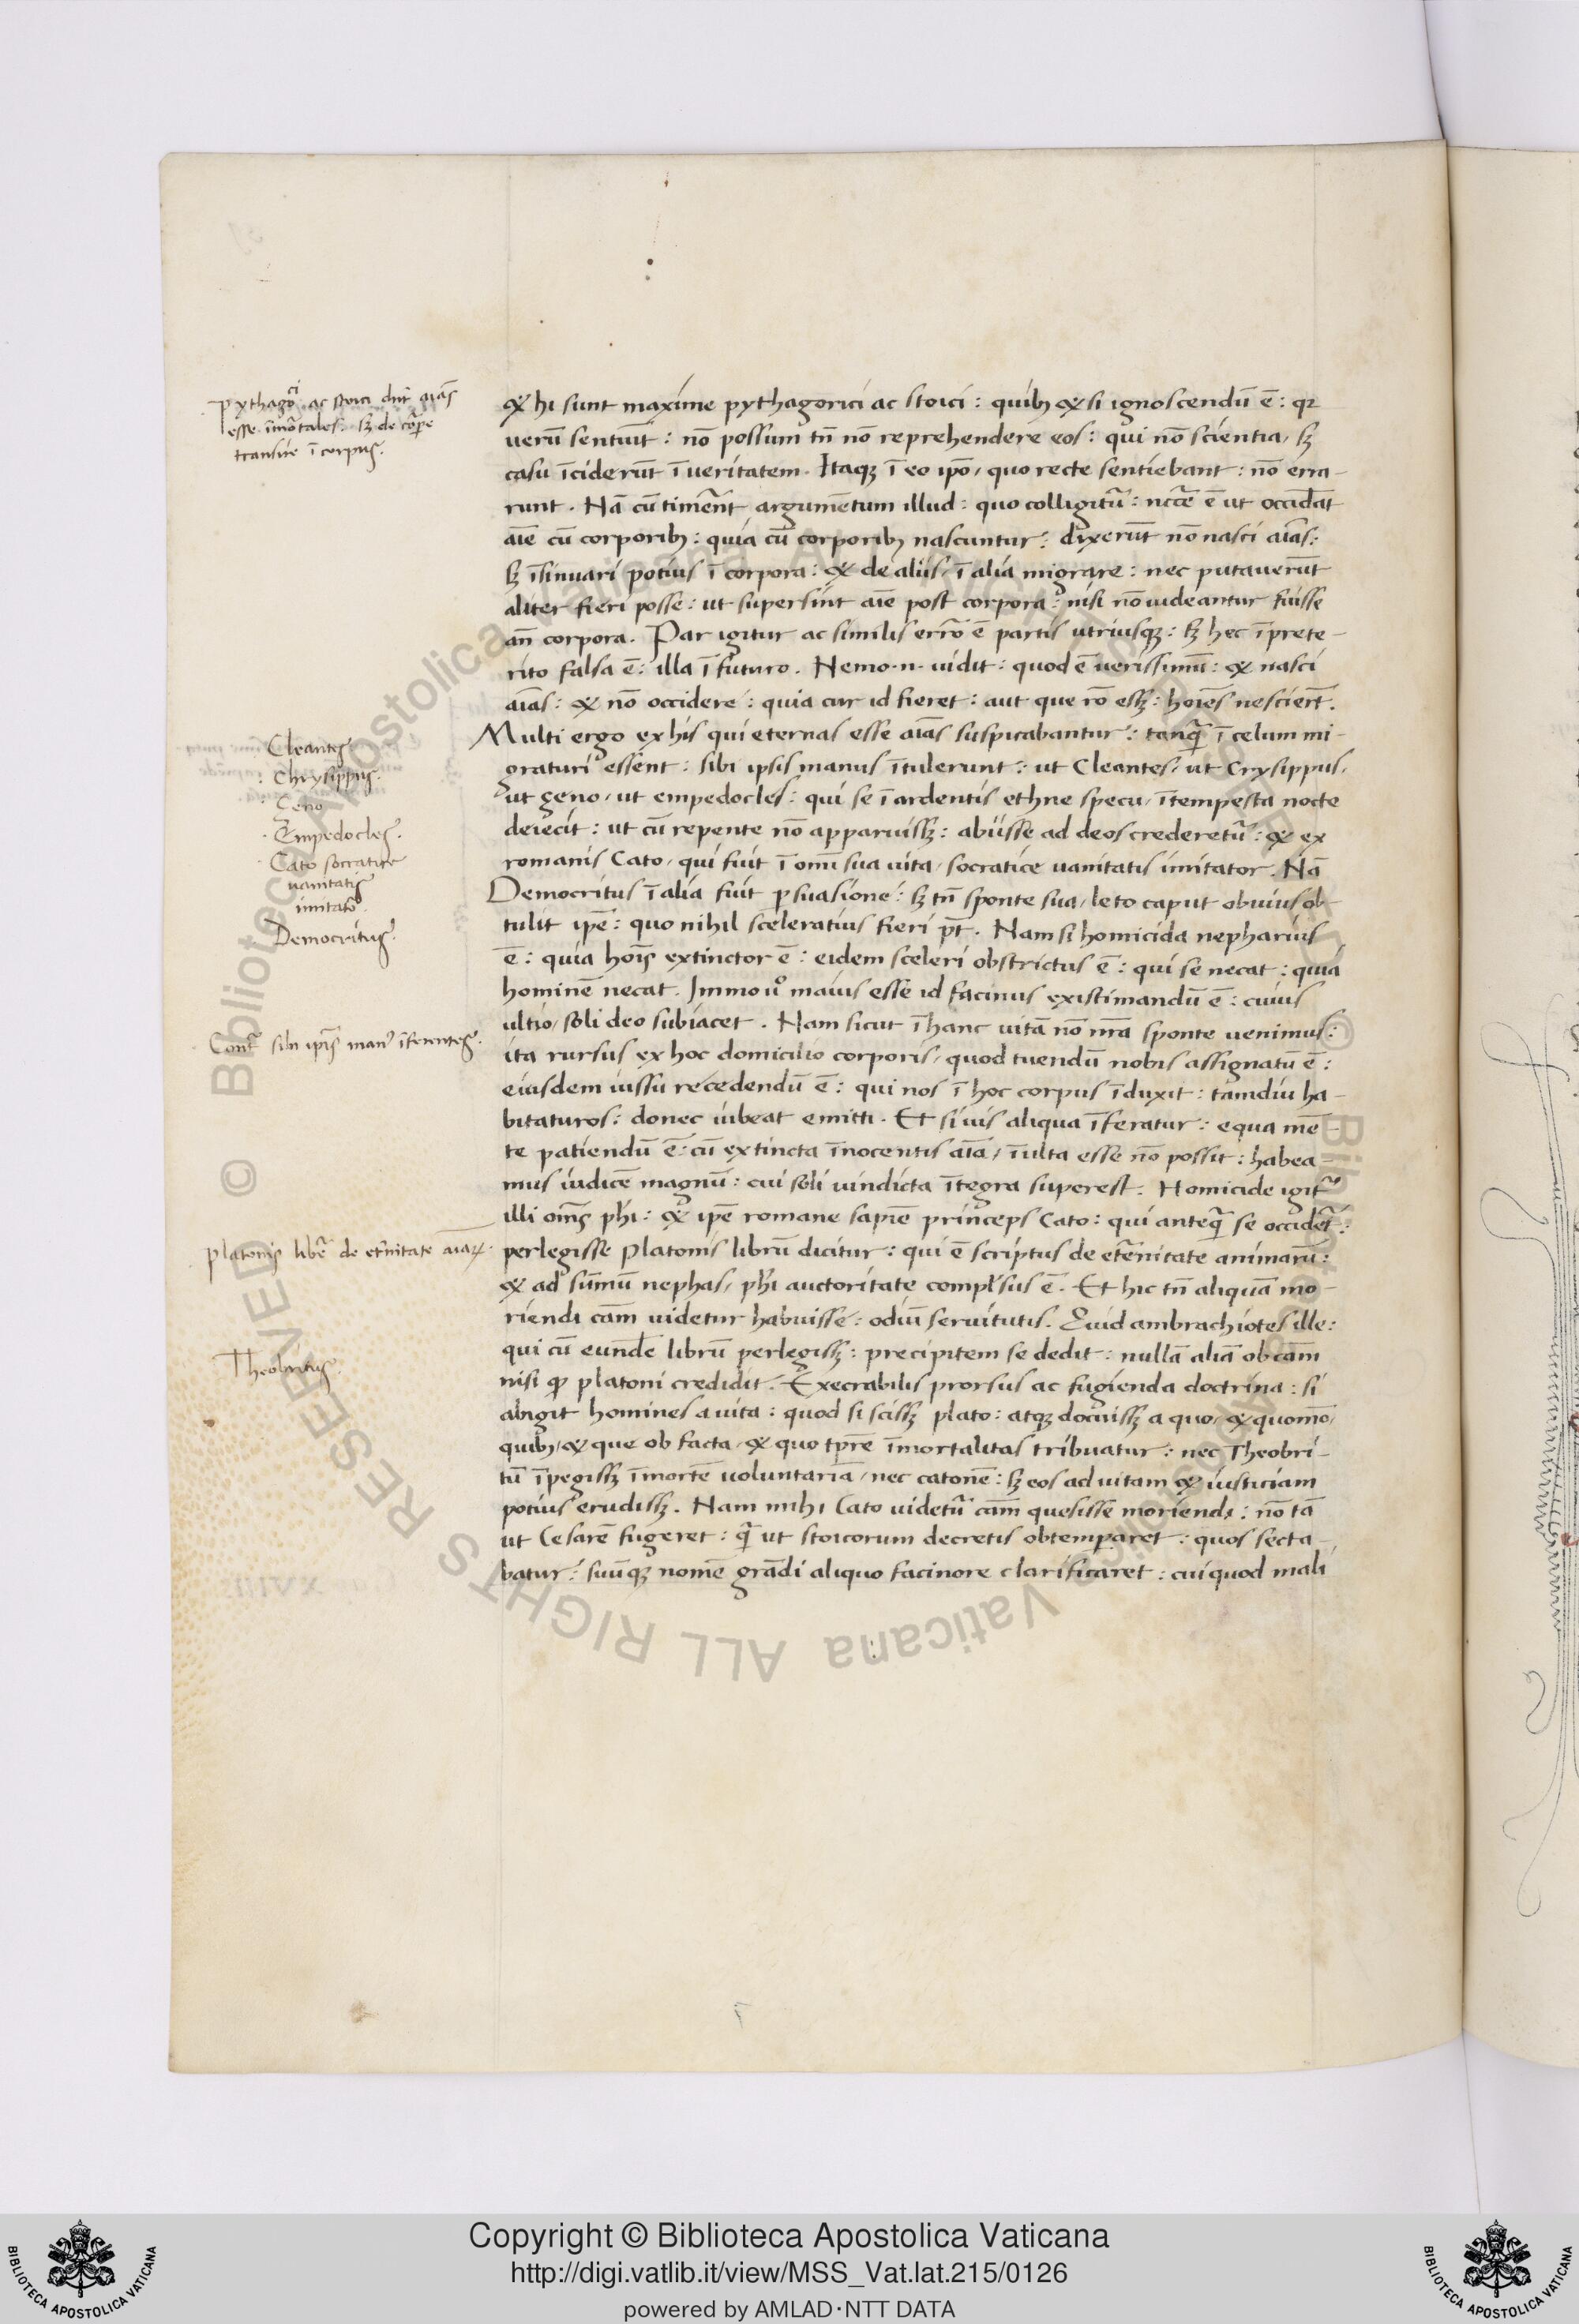 Pythagorici ac stoici dnt aīas
esse īmortales: sꝫ de corpe
transire ī corpus.
⁊ hi sunt maxime pythagorici ac stoici: quibꝫ ⁊ si ignoscendū ē: qꝛ
uerū sentiūt: nō possum tñ nō reprehendere eos: qui nō scientia, sꝫ
casu īciderūt ī ueritatem. Itaqꝫ ī eo ipō, quo recte sentiebant: nō erra-
runt. Nā cū timent argumētum illud: quo colligitur: necē ē ut occidāt
aīe cū corporibꝫ: quia cū corporibꝫ nascuntur: dixerūt nō nasci aīas:
sꝫ īsinuari potius ī corpora: ⁊ de aliis, ī alia migrare: nec putauerūt
aliter fieri posse: ut supersint aīe post corpora: nisi nō uideantur fuisse
añ corpora. Par igitur ac similis error ē partis utriusqꝫ: sꝫ hec ī prete-
rito falsa ē: illa ī futuro. Nemo .n. uidit: quod ē uerissimū: ⁊ nasci
aīas: ⁊ nō occidere: quia cur id fieret: aut que rō essꝫ: hoīes nescierūt.
Multi ergo ex his qui eternas esse aīas suspicabantur: tanqꝫ ī celum mi-
graturi essent: sibi ipsis manus ītulerunt: ut Cleantes, ut Crysippus,
ut zeno, ut empedocles: qui se ī ardentis ethne specu, ītempesta nocte
deiecit: ut cū repente nō apparuissꝫ: abiisse ad deos crederetur: ⁊ ex
romanis Cato, qui fuit ī omi sua uita, socratice uanitatis imitator. Nā
Democritus ī alia fuit psuasione: sꝫ tñ sponte sua, leto caput obuius ob-
tulit ipē: quo nihil sceleratius fieri pt̄. Nam si homicida nepharius
ē: quia hoīs extinctor ē: eidem sceleri obstrictus ē: qui se necat: quia
hominē necat. Immo uº maius esse id facinus existimandū ē: cuius
ultio, soli deo subiacet. Nam sicut ī hanc uitā nō nrā sponte uenimus:
ita rursus ex hoc domicilio corporis, quod tuendū nobis assignatū ē:
eiusdem iussu recedendū ē: qui nos ī hoc corpus īduxit: tamdiu ha-
bitaturos: donec iubeat emitti. Et si uis aliqua īferatur: equa mē-
te patiendū ē: cū extincta īnocentis aīa, īulta esse nō possit: habea-
mus iudicē magnū: cui soli uindicta ītegra superest. Homicide igitʳ
illi omēs phi: ⁊ ipē romane sapiē princeps Cato: qui anteqꝫ se occideret:
perlegisse Platonis librū dicitur: qui ē scriptus de eternitate animarū:
⁊ ad sūmū nephas, phi auctoritate complsus ē. Et hic tñ aliquā mo-
riendi cām uidetur habuisse: odiū seruitutis. Quid ambrachiotes ille:
qui cū eundē librū perlegissꝫ: precipitem se dedit: nullā aliā ob cām
nisi qꝫ platoni credidit. Execrabilis prorsus ac fugienda doctrina: si
abigit homines a uita: quod si scissꝫ plato: atqꝫ docuissꝫ a quo, ⁊ quomō,
quibꝫ, ⁊ que ob facta, ⁊ quo tpre īmortalitas tribuatur: nec Theobri-
tū īpegissꝫ ī mortē uoluntariā, nec catonē: sꝫ eos ad uitam ⁊ iusticiam
potius erudissꝫ. Nam mihi Cato uidetur cām quesisse moriendi: nō tā
ut Cesarē fugeret: qꝫ ut stoicorum decretis obtemperaret: quos secta-
batur: suūqꝫ nomē grādi aliquo facinore clarificaret: cui quod mali
Cleantes
: Chrysippus.
: Zeno
. Empedocles.
. Cato socratice
uanitatis
imitator.
Democritus.
Contra sibi ipsis manus īferentes.
Platonis liber de eternitate aīarꝫ.
Theobritus.
Copyright © Biblioteca Apostolica Vaticana
http://digi.vatlib.it/view/MSS_Vat.lat.215/0126
powered by AMLAD·NTT DATA
BIBLIOTECA APOSTOLICA VATICANA
BIBLIOTECA APOSTOLICA VATICANA
© Biblioteca Apostolica Vaticana ALL RIGHTS RESERVED